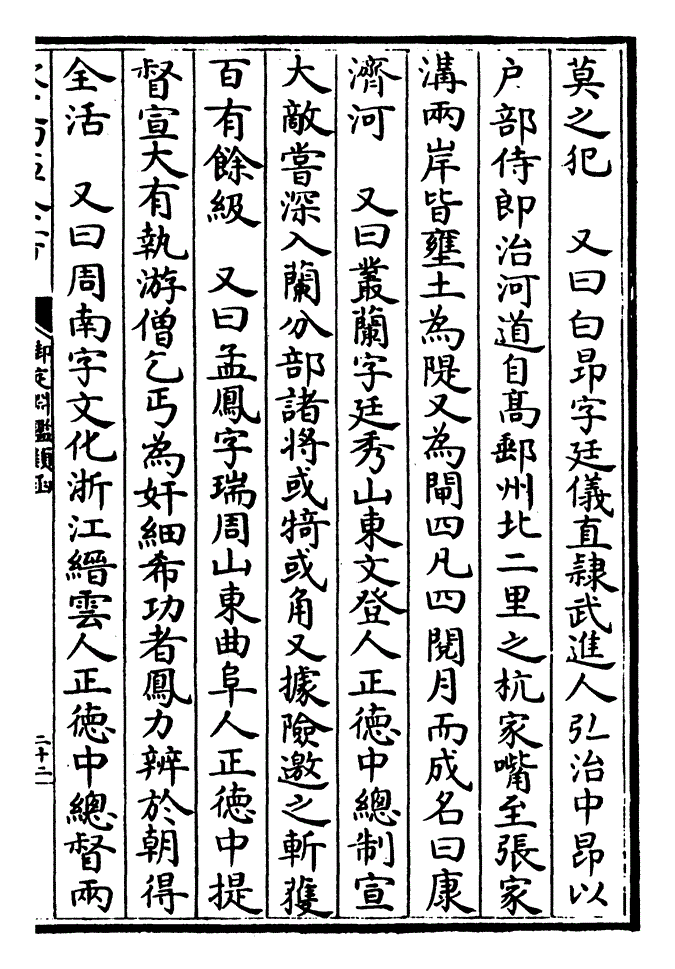 莫之犯　又曰白昻字廷儀直隸武進人弘治中昻以
户部侍郎治河道自髙郵州北二里之杭家嘴至張家
溝兩岸皆壅土為隄又為閘四凡四閱月而成名曰康
濟河　又曰叢蘭字廷秀山東文登人正徳中總制宣
大敵嘗深入蘭分部諸將或犄或角又據險邀之斬獲
百有餘級　又曰孟鳳字瑞周山東曲阜人正徳中提
督宣大有執游僧乞丐為奸細希功者鳳力辨於朝得
全活　又曰周南字文化浙江縉雲人正徳中總督兩
御定淵鑑類函
二十二